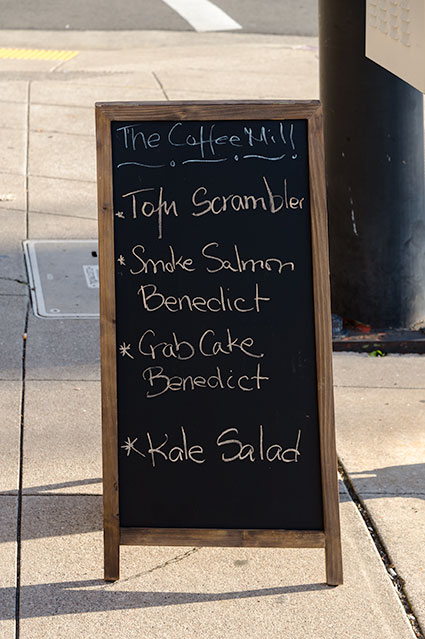 The Coffee Mill
* Tofu Scrambler
* Smoke Salmon
Benedict
* Crab Cake
Benedict
* Kale Salad